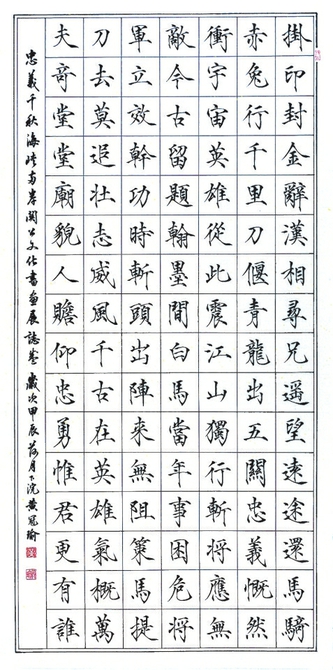 掛印封金辭漢相尋兄遥望遠途還馬騎
赤兔行千里刀偃青龍出五關忠義慨然
衝宇宙英雄從此震江山獨行斬將應無
敵今古留題翰墨間白馬當年事困危將
軍立效幹功時斬頭出陣來無阻策馬提
刀去莫追壯志威風千古在英雄氣概萬
夫奇堂堂廟貌人瞻仰忠勇惟君更有誰
忠義千秋海峽兩岸關公文化書畫展誌慶 歲次甲辰荷月下浣黃冠瑜